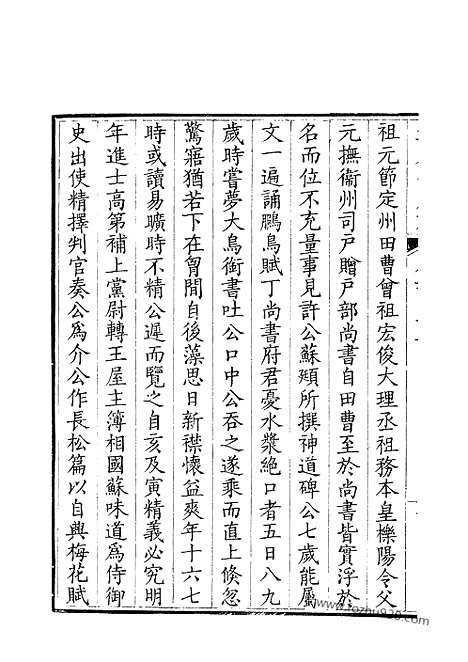 祖元節定州田曹曾祖宏俊大理丞祖務本皇櫟陽令父
元撫衞州司戸贈戸部尚書自田曹至於尚書皆實浮於
名而位不充量事見許公蘇頲所撰神道碑公七歲能屬
文一遍誦鵬鳥賦丁尚書府君憂水漿絶口者五日八九
歲時嘗夢大鳥銜書吐公口中公吞之遂乘而直上倏忽
驚寤猶若下在胷間自後藻思日新襟懷益爽年十六七
時或讀易曠時不精公遲而覽之自亥及寅精義必究明
年進士高第補上黨尉轉王屋主簿相國蘇味道爲侍御
史出使精擇判官奏公爲介公作長松篇以自興梅花賦